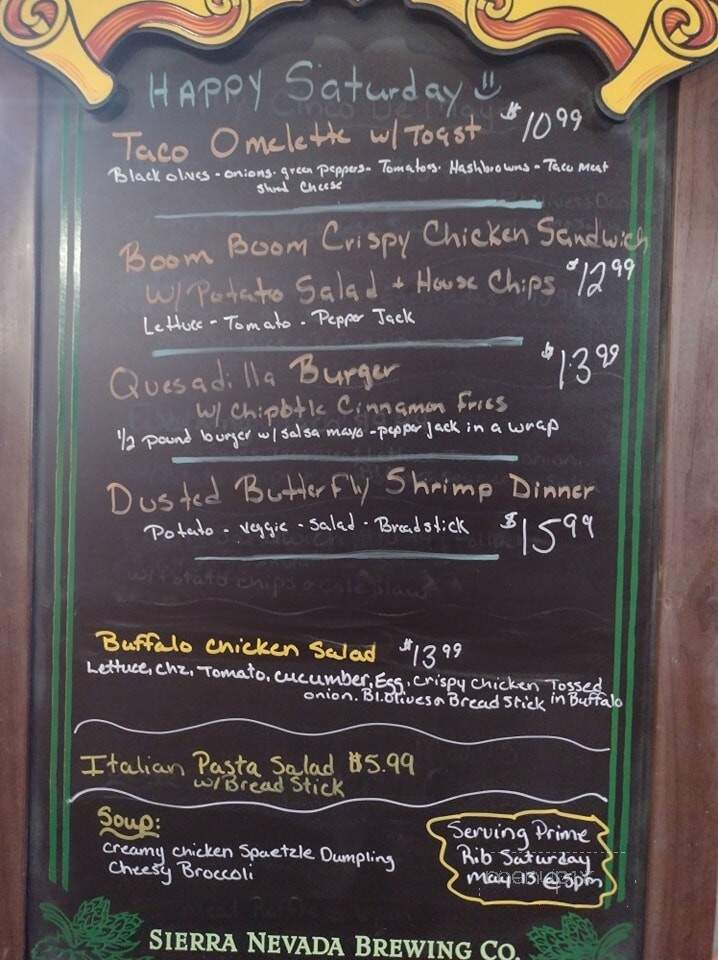 HAPPY Saturday
Taco Omelette w/ Toast $10.99
Black olives - onions - green peppers - Tomatoes - Hashbrowns - Taco meat
shred cheese
Boom Boom Crispy Chicken Sandwich
w/ Potato Salad + House Chips $12.99
Lettuce - Tomato - Pepper Jack
Quesadilla Burger $13.99
w/ chipotle Cinnamon Fries
1/2 pound burger w/ salsa mayo - pepper jack in a wrap
Dusted Butterfly Shrimp Dinner
Potato - veggie - salad - Breadstick $15.99
Buffalo chicken Salad $13.99
Lettuce, chz, Tomato, cucumber, Egg, crispy chicken Tossed
onion. Bl. olives Bread Stick in Buffalo
Italian Pasta Salad $5.99
w/ Bread Stick
Soup:
creamy chicken Spaetzle Dumpling
cheesy Broccoli
Serving Prime
Rib Saturday
May 13 @ 5pm
SIERRA NEVADA BREWING CO.